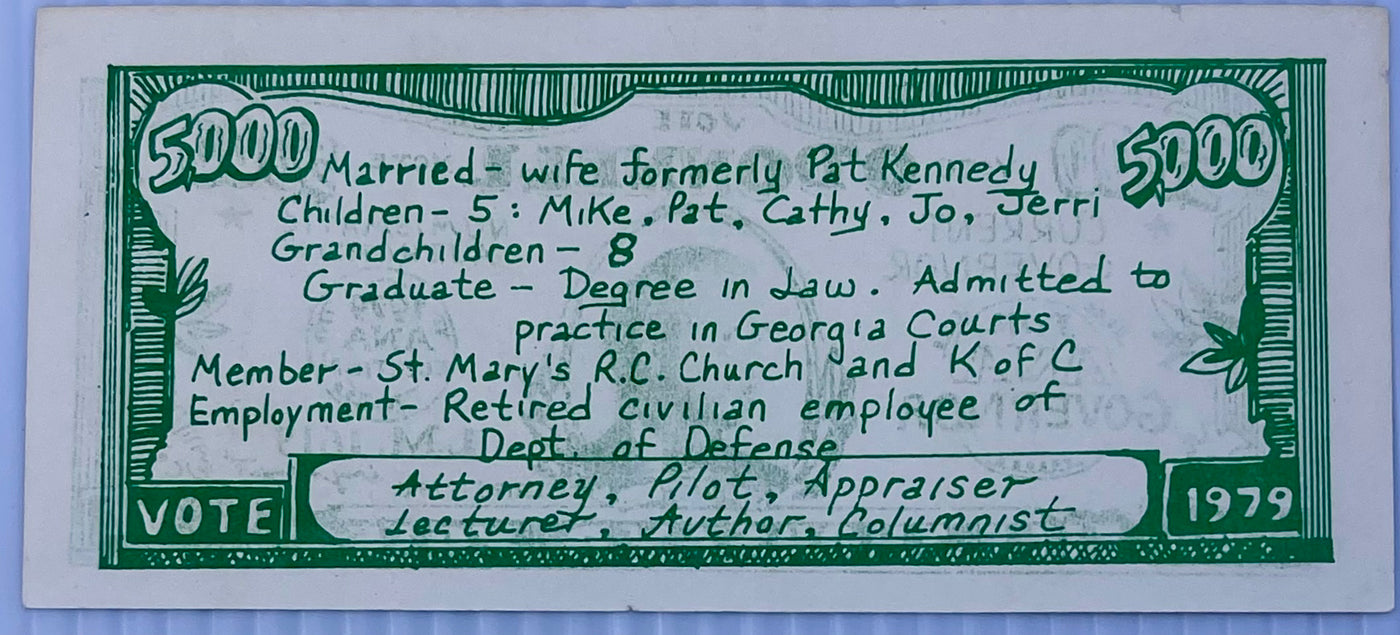 5,000
5,000
Married - wife formerly Pat Kennedy
Children - 5 : Mike, Pat, Cathy, Jo, Jerri
Grandchildren - 8
Graduate - Degree in Law. Admitted to
practice in Georgia Courts
Member - St. Mary's R.C. Church and K of C
Employment - Retired civilian employee of
Dept. of Defense
Attorney, Pilot, Appraiser
Lecturer, Author, Columnist
VOTE
1979